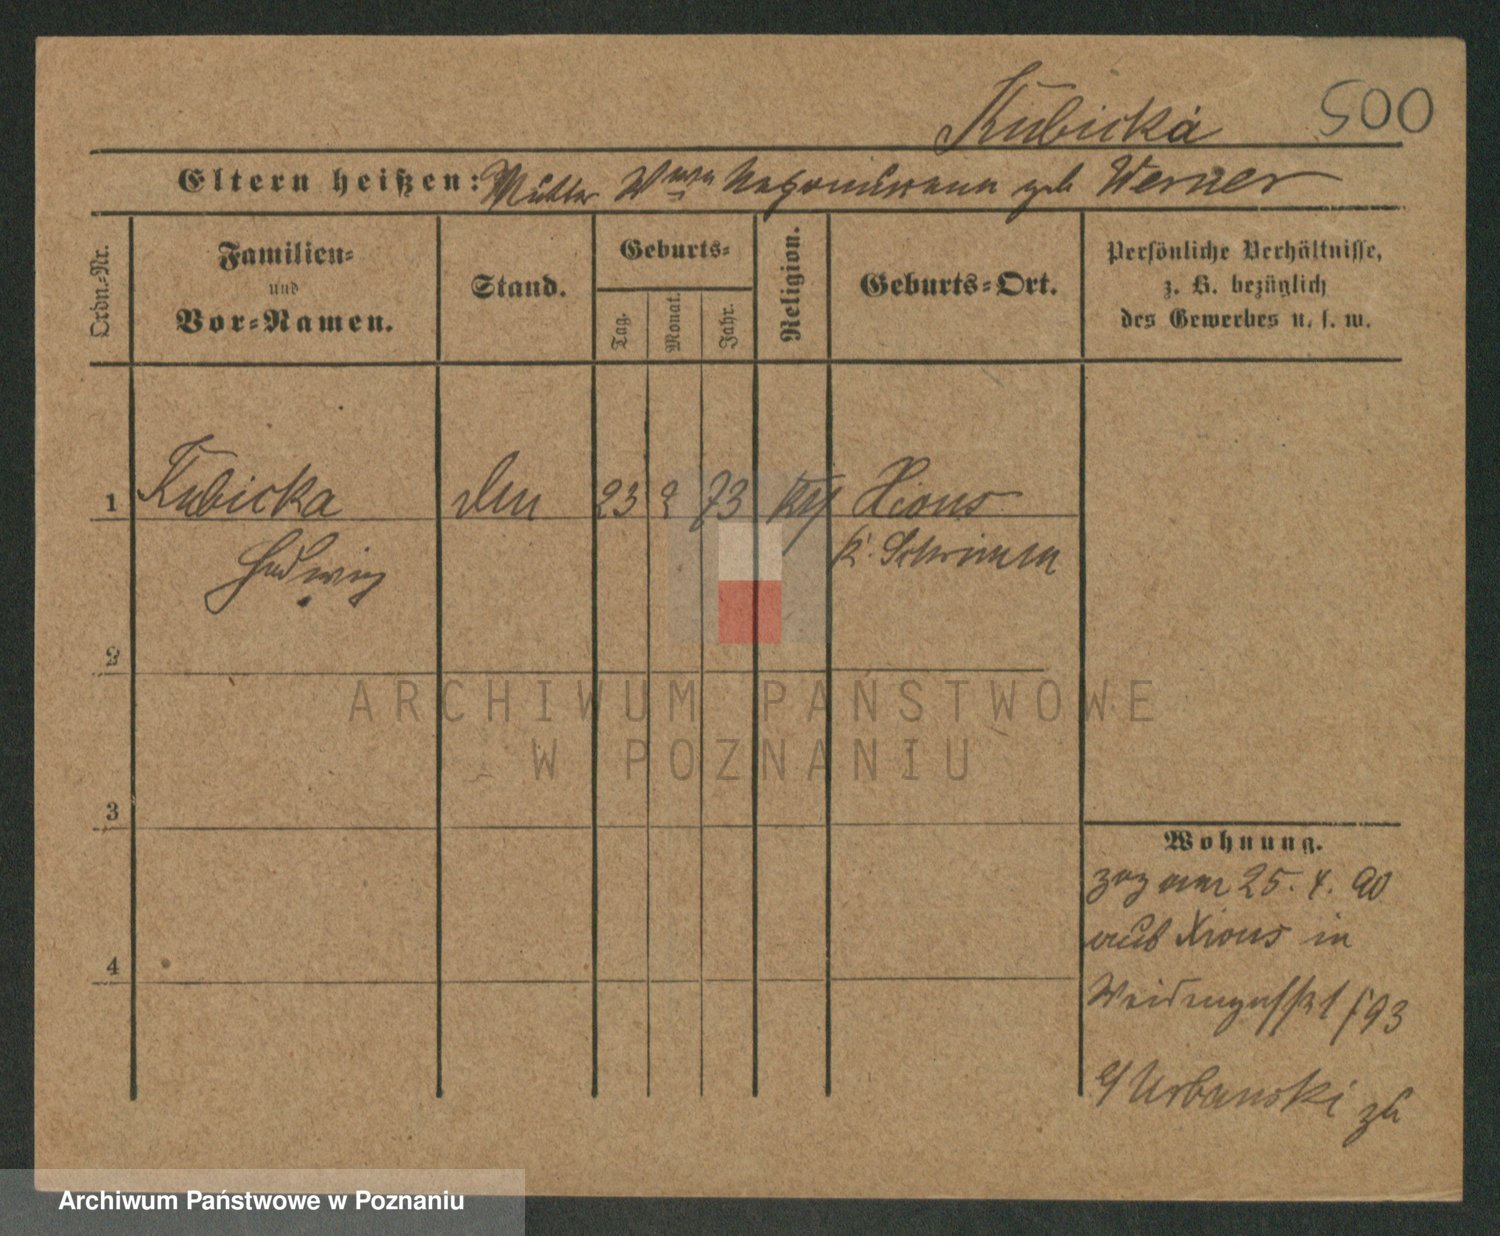 Kubicka 500
Eltern heißen: Mutter Wwe geb Werner
Ordn.-Nr.
Familien-
und
Vor-Namen.
Stand.
Geburts-
Tag.
Monat.
Jahr.
Religion.
Geburts-Ort.
Persönliche Verhältnisse,
z. B. bezüglich
des Gewerbes u. s. w.
1 Kubicka 23 2 73 Xions
Hedwig Schrimm
2
3
4
Wohnung.
zog am 25. 4. 90
aus Xions in
Weidengasse
Urbanski zu
ARCHIWUM PAŃSTWOWE
W POZNANIU
Archiwum Państwowe w Poznaniu